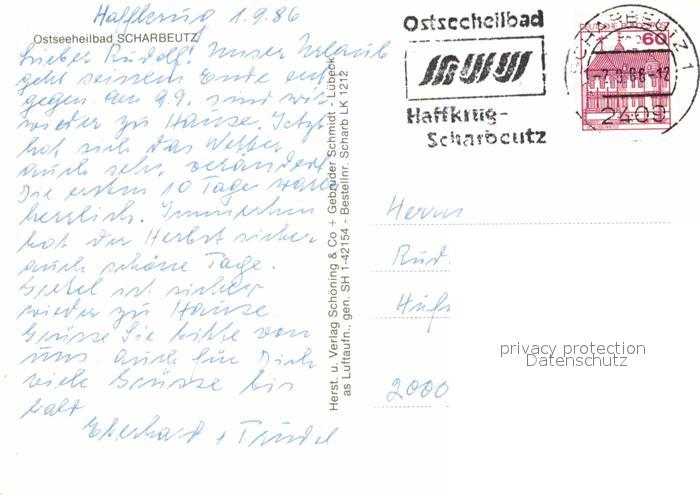 Haffkrug 1.9.86
Ostseeheilbad SCHARBEUTZ
Lieber Rudolf! Unser Urlaub
geht seinem Ende ent-
gegen. Am 9.9. sind wir
wieder zu Hause. Jetzt
hat sich das Wetter
auch sehr verändert.
Die ersten 10 Tage waren
herrlich. Immerhin
hat der Herbst sicher
auch schöne Tage.
Gretel ist sicher
wieder zu Hause.
Grüsse Sie bitte von
uns. auch für Dich
viele Grüsse bis
bald
Eberhard + Trudel
Herst. u. Verlag Schöning & Co + Gebrüder Schmidt - Lübeck
as Luftaufn., gen. SH 1-42154 - Bestellnr. Scharb LK 1212
Ostseeheilbad
Haffkrug-
Scharbeutz
DEUTSCHE BUNDESPOST
60
SCHARBEUTZ 1
2409
Herrn
Rud.
2000
privacy protection
Datenschutz